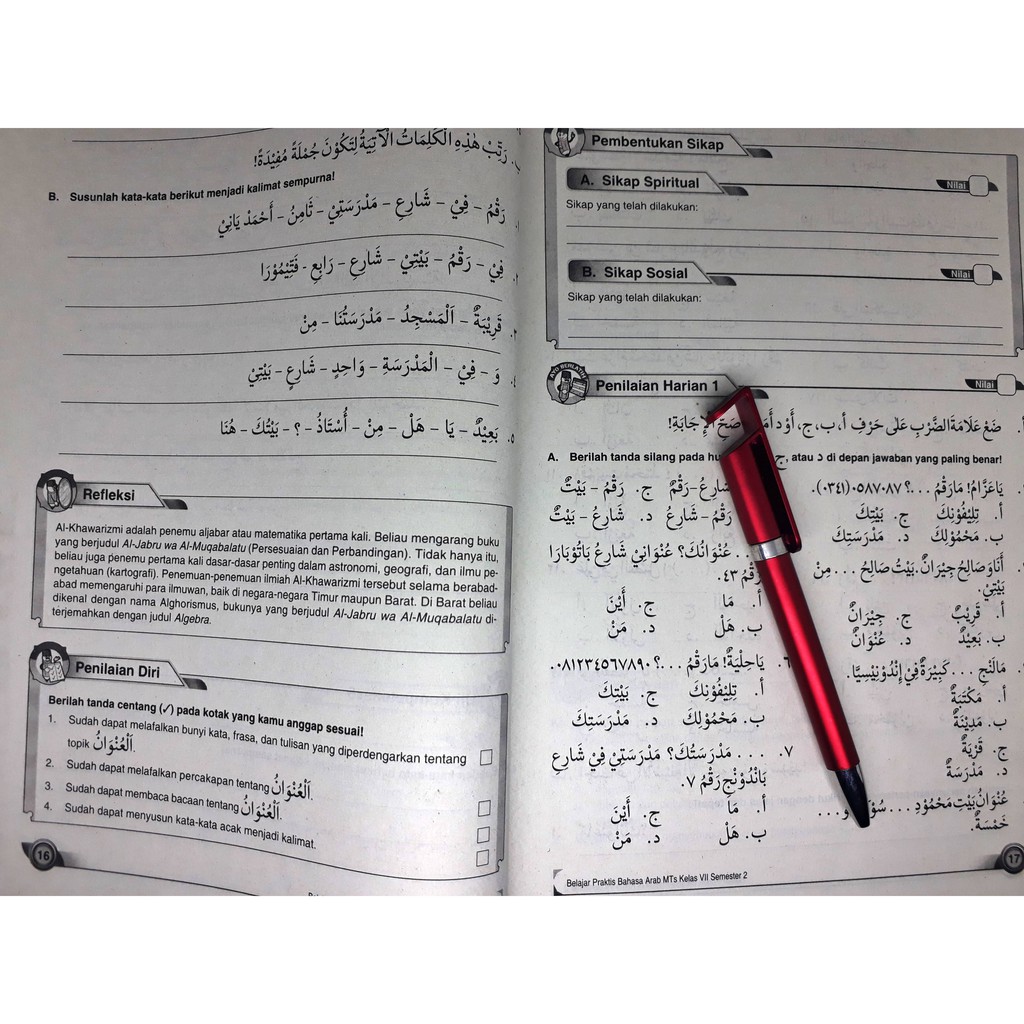 رَتِّبْ هٰذِهِ الْكَلِمَاتُ الْآتِيَةُ لِتَكُوْنَ جُمْلَةً مُفِيْدَةً!
B. Susunlah kata-kata berikut menjadi kalimat sempurna!
رَقْمُ - فِيْ - شَارِعِ - مَدْرَسَتِيْ - ثَامِنُ - أَحْمَدْ يَانِيْ
فِيْ - رَقْمُ - بَيْتِيْ - شَارِعِ - رَابِعِ - فَتِّيْمُوْرَا
قَرِيْبَةٌ - اَلْمَسْجِدُ - مَدْرَسَتُنَا - مِنْ
وَ - فِيْ - الْمَدْرَسَةِ - وَاحِدٍ - شَارِعٍ - بَيْتِيْ
٥. بَعِيْدٌ - يَا - هَلْ - مِنْ - أُسْتَاذُ - ؟ - بَيْتُكَ - هُنَا
Refleksi
Al-Khawarizmi adalah penemu aljabar atau matematika pertama kali. Beliau mengarang buku
yang berjudul Al-Jabru wa Al-Muqabalatu (Persesuaian dan Perbandingan). Tidak hanya itu,
beliau juga penemu pertama kali dasar-dasar penting dalam astronomi, geografi, dan ilmu pe-
ngetahuan (kartografi). Penemuan-penemuan ilmiah Al-Khawarizmi tersebut selama berabad-
abad memengaruhi para ilmuwan, baik di negara-negara Timur maupun Barat. Di Barat beliau
dikenal dengan nama Alghorismus, bukunya yang berjudul Al-Jabru wa Al-Muqabalatu di-
terjemahkan dengan judul Algebra.
Penilaian Diri
Berilah tanda centang (✓) pada kotak yang kamu anggap sesuai!
1. Sudah dapat melafalkan bunyi kata, frasa, dan tulisan yang diperdengarkan tentang
topik اَلْعُنْوَانُ.
2. Sudah dapat melafalkan percakapan tentang اَلْعُنْوَانُ.
3. Sudah dapat membaca bacaan tentang اَلْعُنْوَانُ.
4. Sudah dapat menyusun kata-kata acak menjadi kalimat.
16
Pembentukan Sikap
A. Sikap Spiritual
Nilai
Sikap yang telah dilakukan:
B. Sikap Sosial
Nilai
Sikap yang telah dilakukan:
AYO BERLATIH
Penilaian Harian 1
Nilai
ضَعْ عَلَامَةَ الضَّرْبِ عَلَى حَرْفِ أ، ب، ج، أَوْ د الْإِجَابَةِ!
A. Berilah tanda silang pada ج, atau د di depan jawaban yang paling benar!
يَاعَزَّامُ! مَارَقْمُ . . . ؟ ٠٥٨٧٠٨٧(٠٣٤١).
أ. تِلِيْفُوْنِكَ ج. بَيْتِكَ
ب. مَحْمُوْلِكَ د. مَدْرَسَتِكَ
أَنَاوَصَالِحُ جِيْرَانٌ. بَيْتُ صَالِحٍ . . . مِنْ
بَيْتِيْ.
أ. قَرِيْبٌ ج. جِيْرَانٌ
ب. بَعِيْدٌ د. عُنْوَانٌ
مَالَنْج . . . كَبِيْرَةٌ فِيْ إِنْدُوْنِيْسِيَّا.
أ. مَكْتَبَةٌ
ب. مَدِيْنَةٌ
ج. قَرْيَةٌ
د. مَدْرَسَةٌ
عُنْوَانُ بَيْتِ مَحْمُوْدٍ . . . و . . .
خَمْسَةٌ.
شَارِعُ-رَقْمٌ ج. رَقْمُ - بَيْتٌ
رَقْمُ - شَارِعُ د. شَارِعُ - بَيْتٌ
. . . عُنْوَانُكَ؟ عُنْوَانِيْ شَارِعُ بَاتُوْبَارَا
رَقْمُ ٤٣.
أ. مَا ج. أَيْنَ
ب. هَلْ د. مَنْ
٦. يَاحِلْيَةُ! مَارَقْمُ . . . ؟ ٠٨١٢٣٤٥٦٧٨٩٠.
أ. تِلِيْفُوْنِكِ ج. بَيْتِكِ
ب. مَحْمُوْلِكِ د. مَدْرَسَتِكِ
٧. . . . مَدْرَسَتُكَ؟ مَدْرَسَتِيْ فِيْ شَارِعِ
بَانْدُوْنْج رَقْمُ ٧.
أ. مَا ج. أَيْنَ
ب. هَلْ د. مَنْ
Belajar Praktis Bahasa Arab MTs Kelas VII Semester 2
17